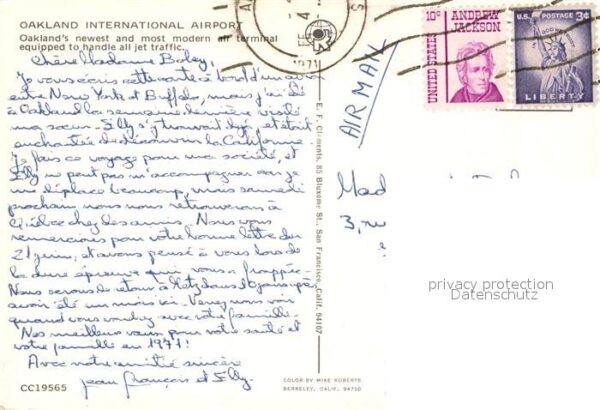 OAKLAND INTERNATIONAL AIRPORT
Oakland's newest and most modern air terminal
equipped to handle all jet traffic.
Chère Madame Baley,
Je vous écris cette carte à bord d'un avion
entre New York et Buffalo, mais j'ai été
à Oakland la semaine dernière visité
ma sœur. Elly s'y trouvait déjà, et était
enchantée de découvrir la Californie.
Je fais ce voyage pour ma société, et
Elly ne peut pas m'accompagner car je
me déplace beaucoup, mais samedi
prochain nous nous retrouverons à
Québec chez des amis. Nous vous
remercions pour votre bonne lettre du
21 juin, et avons pensé à vous lors de
la dure épreuve qui vous a frappée.
Nous serons de retour à Metz dans 10 jours après
avoir été un mois ici. Venez nous voir
quand vous voulez avec votre famille.
Nos meilleurs vœux pour votre santé et
votre famille en 1971!
Avec notre amitié sincère
Jean François et Elly.
CC19565
E. F. Clements, 85 Bluxome St., San Francisco, Calif. 94107
COLOR BY MIKE ROBERTS
BERKELEY, CALIF. 94710
FE
4
1971
AIR MAIL
10c
ANDREW
JACKSON
UNITED STATES
U.S. POSTAGE 3¢
IN GOD WE TRUST
LIBERTY
Mad
3, ru
privacy protection
Datenschutz